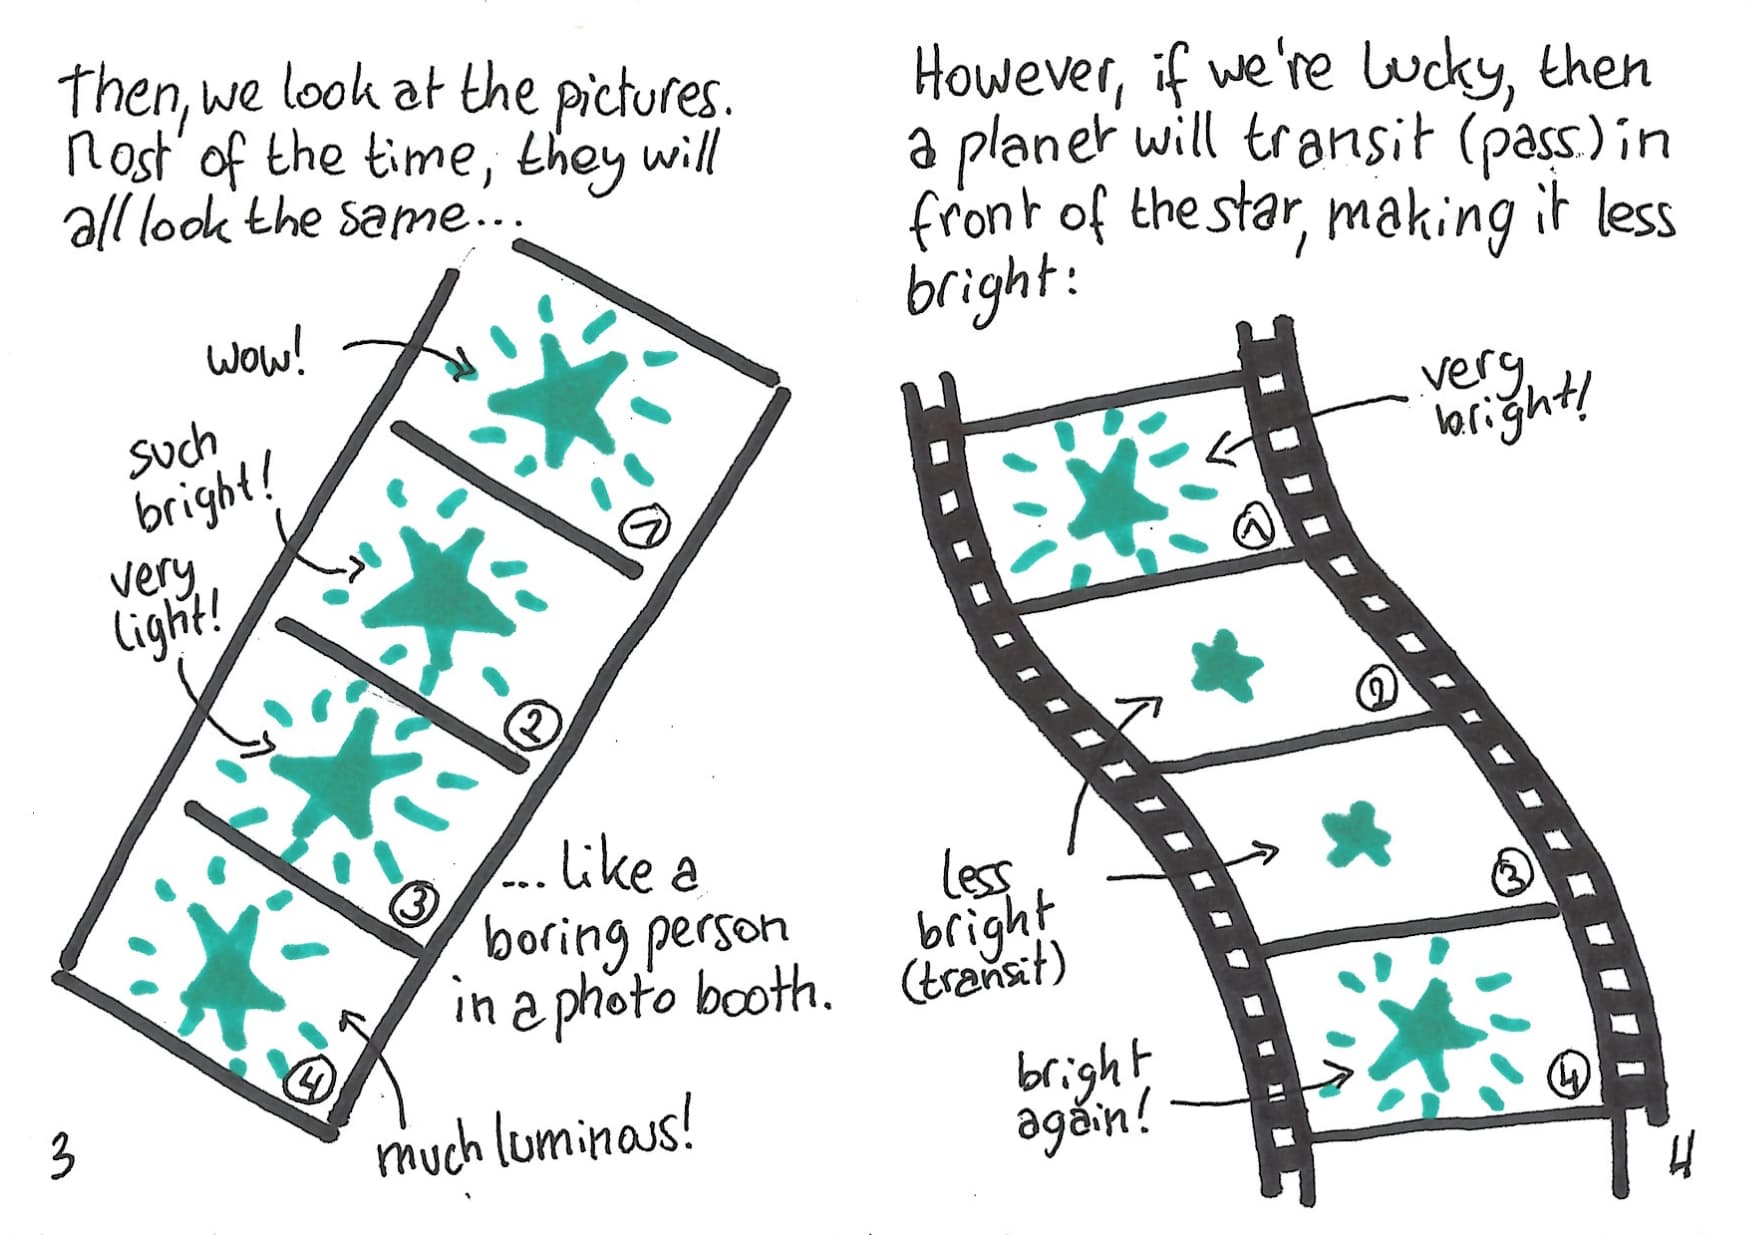 Then, we look at the pictures.
Most of the time, they will
all look the same...
wow!
such
bright!
very
light!
1
2
3
4
... like a
boring person
in a photo booth.
much luminous!
3
However, if we're lucky, then
a planet will transit (pass) in
front of the star, making it less
bright:
very
bright!
1
2
3
4
less
bright
(transit)
bright
again!
4